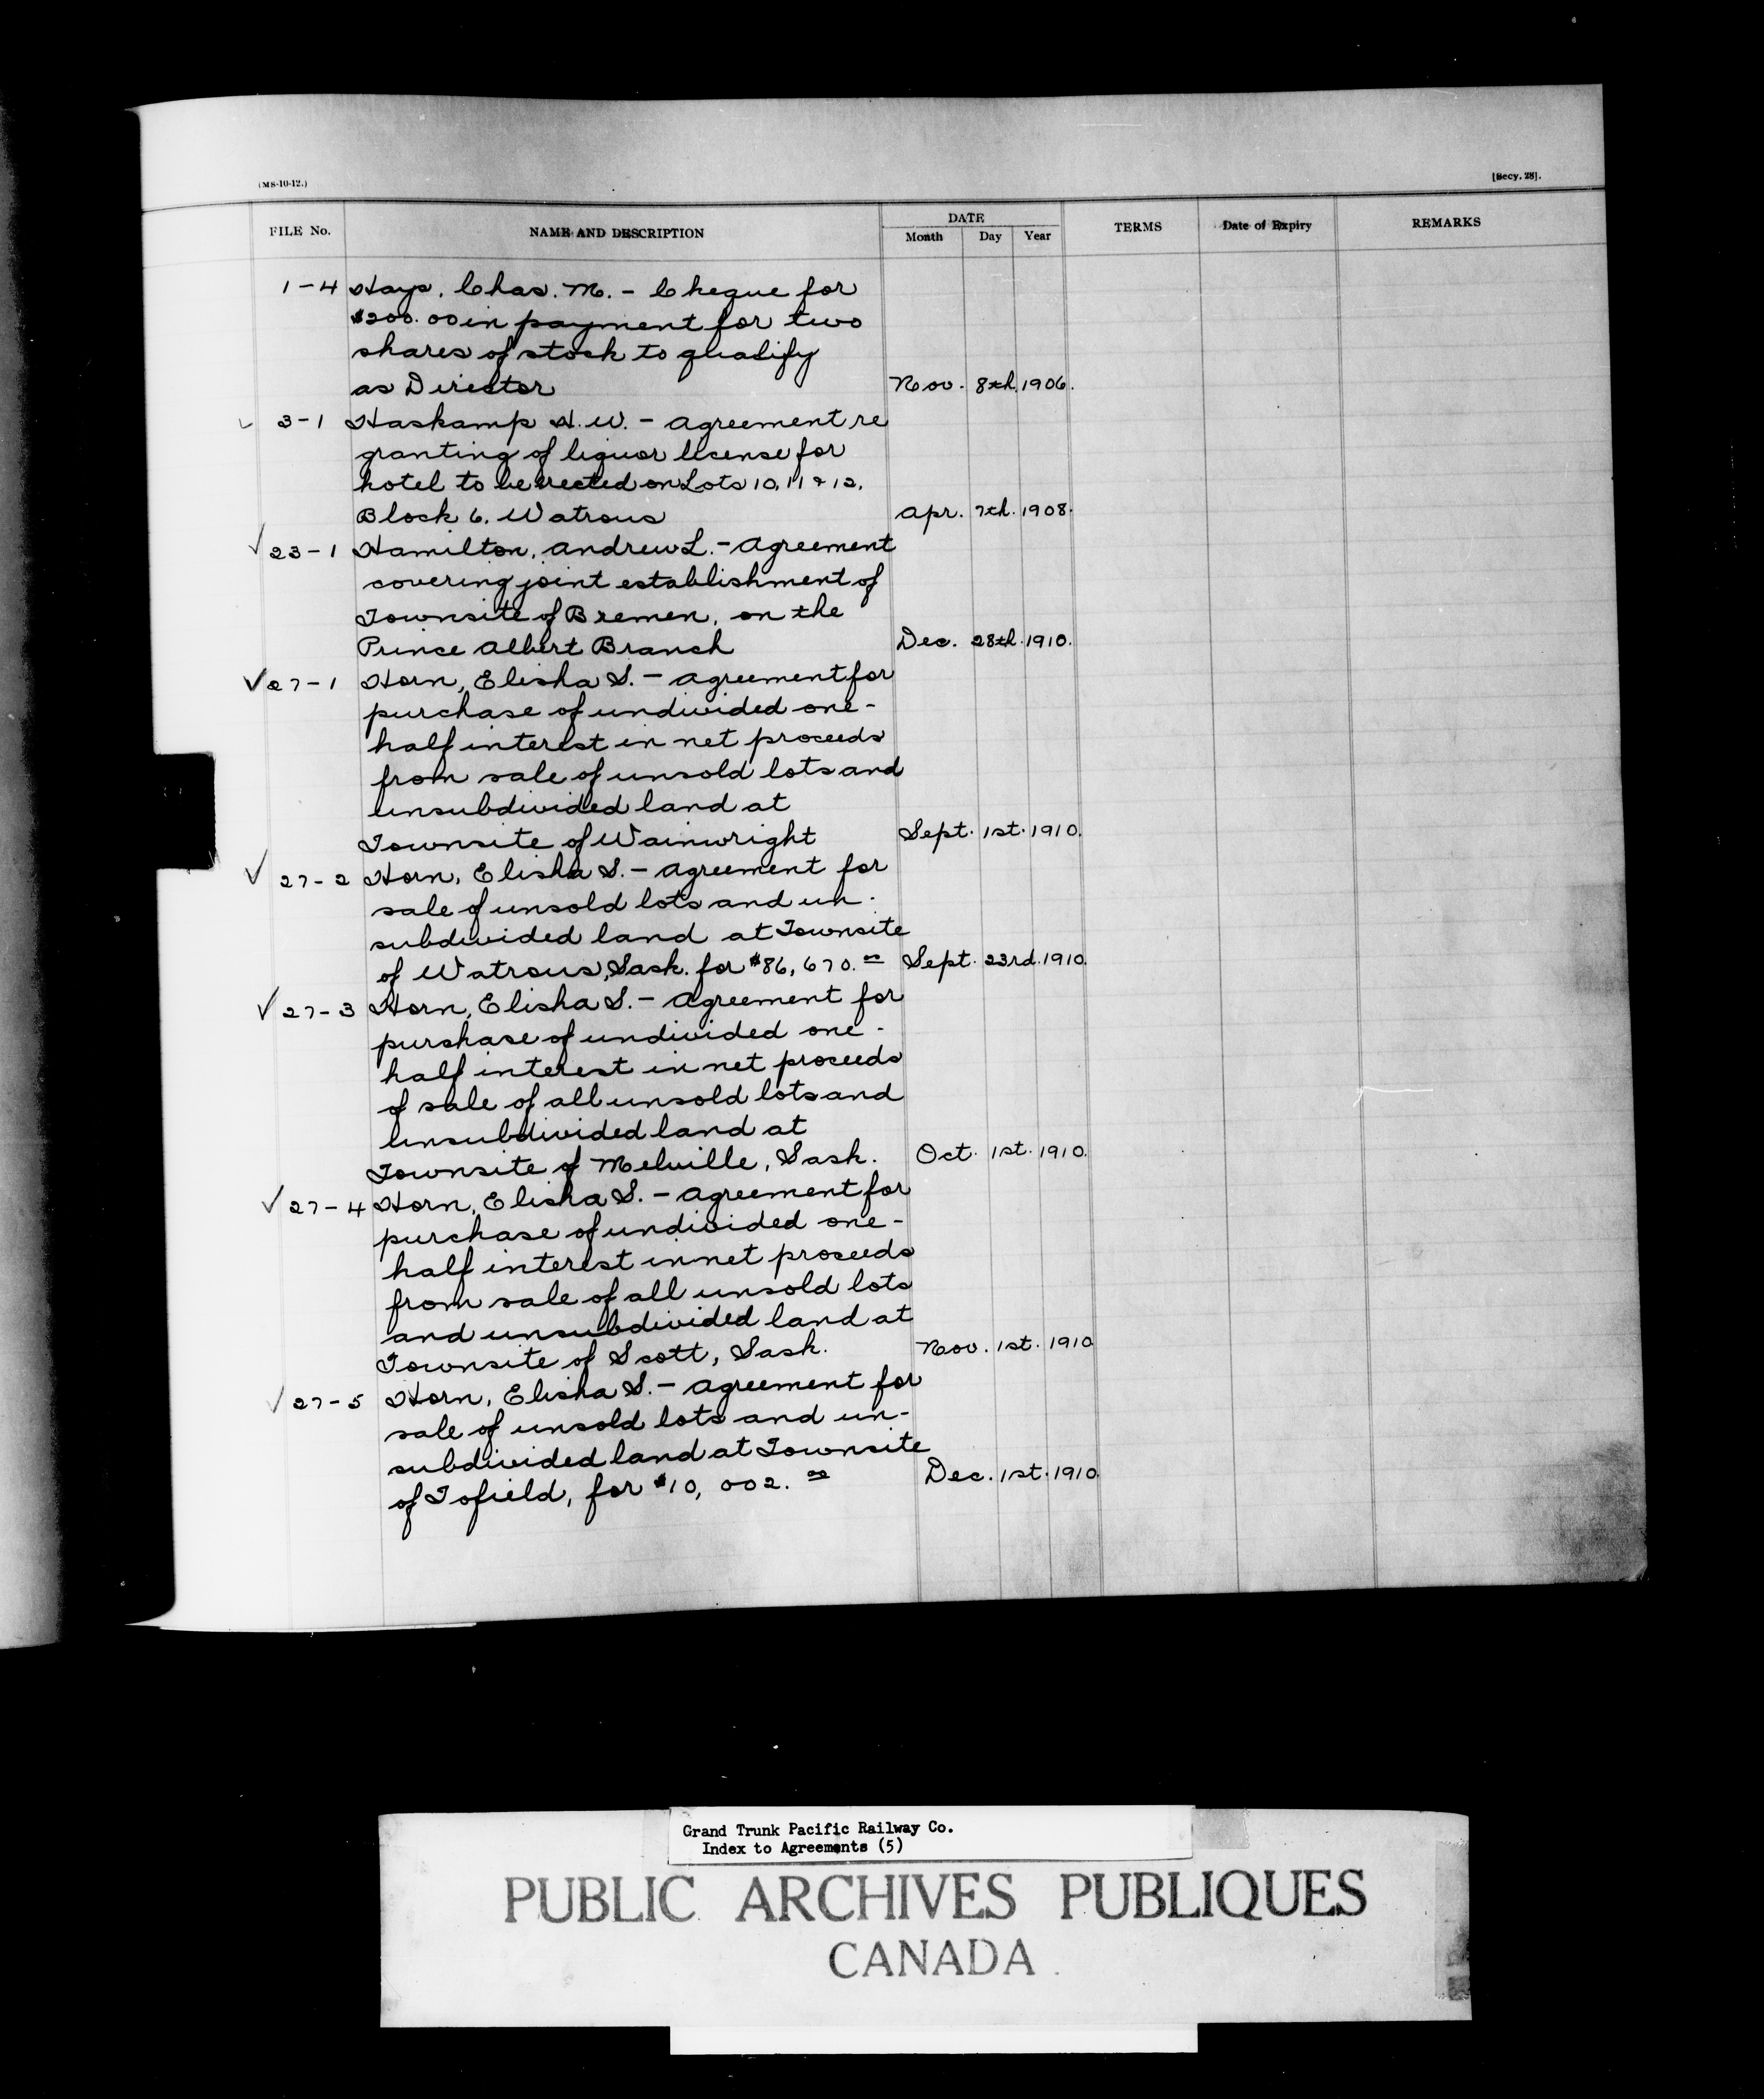 (MS-10-12.)
[Secy. 28].
FILE No. NAME AND DESCRIPTION DATE Month Day Year TERMS Date of Expiry REMARKS
1-4 Hays, Chas. M. - Cheque for
$200.00 in payment for two
shares of stock to qualify
as Director Nov. 8th. 1906.
3-1 Haskamp H. W. - Agreement re
granting of liquor license for
hotel to be erected on Lots 10, 11 & 12,
Block 6, Watrous Apr. 7th. 1908.
✓ 23-1 Hamilton, Andrew L. - Agreement
covering joint establishment of
Townsite of Bremen, on the
Prince Albert Branch Dec. 28th. 1910.
✓ 27-1 Horn, Elisha S. - Agreement for
purchase of undivided one-
half interest in net proceeds
from sale of unsold lots and
unsubdivided land at
Townsite of Wainwright Sept. 1st. 1910.
✓ 27-2 Horn, Elisha S. - Agreement for
sale of unsold lots and un-
subdivided land at Townsite
of Watrous, Sask. for $86,670.00 Sept. 23rd. 1910.
✓ 27-3 Horn, Elisha S. - Agreement for
purchase of undivided one-
half interest in net proceeds
of sale of all unsold lots and
unsubdivided land at
Townsite of Melville, Sask. Oct. 1st. 1910.
✓ 27-4 Horn, Elisha S. - Agreement for
purchase of undivided one-
half interest in net proceeds
from sale of all unsold lots
and unsubdivided land at
Townsite of Scott, Sask. Nov. 1st. 1910
✓ 27-5 Horn, Elisha S. - Agreement for
sale of unsold lots and un-
subdivided land at Townsite
of Tofield, for $10,002.00 Dec. 1st. 1910.
Grand Trunk Pacific Railway Co.
Index to Agreements (5)
PUBLIC ARCHIVES PUBLIQUES
CANADA